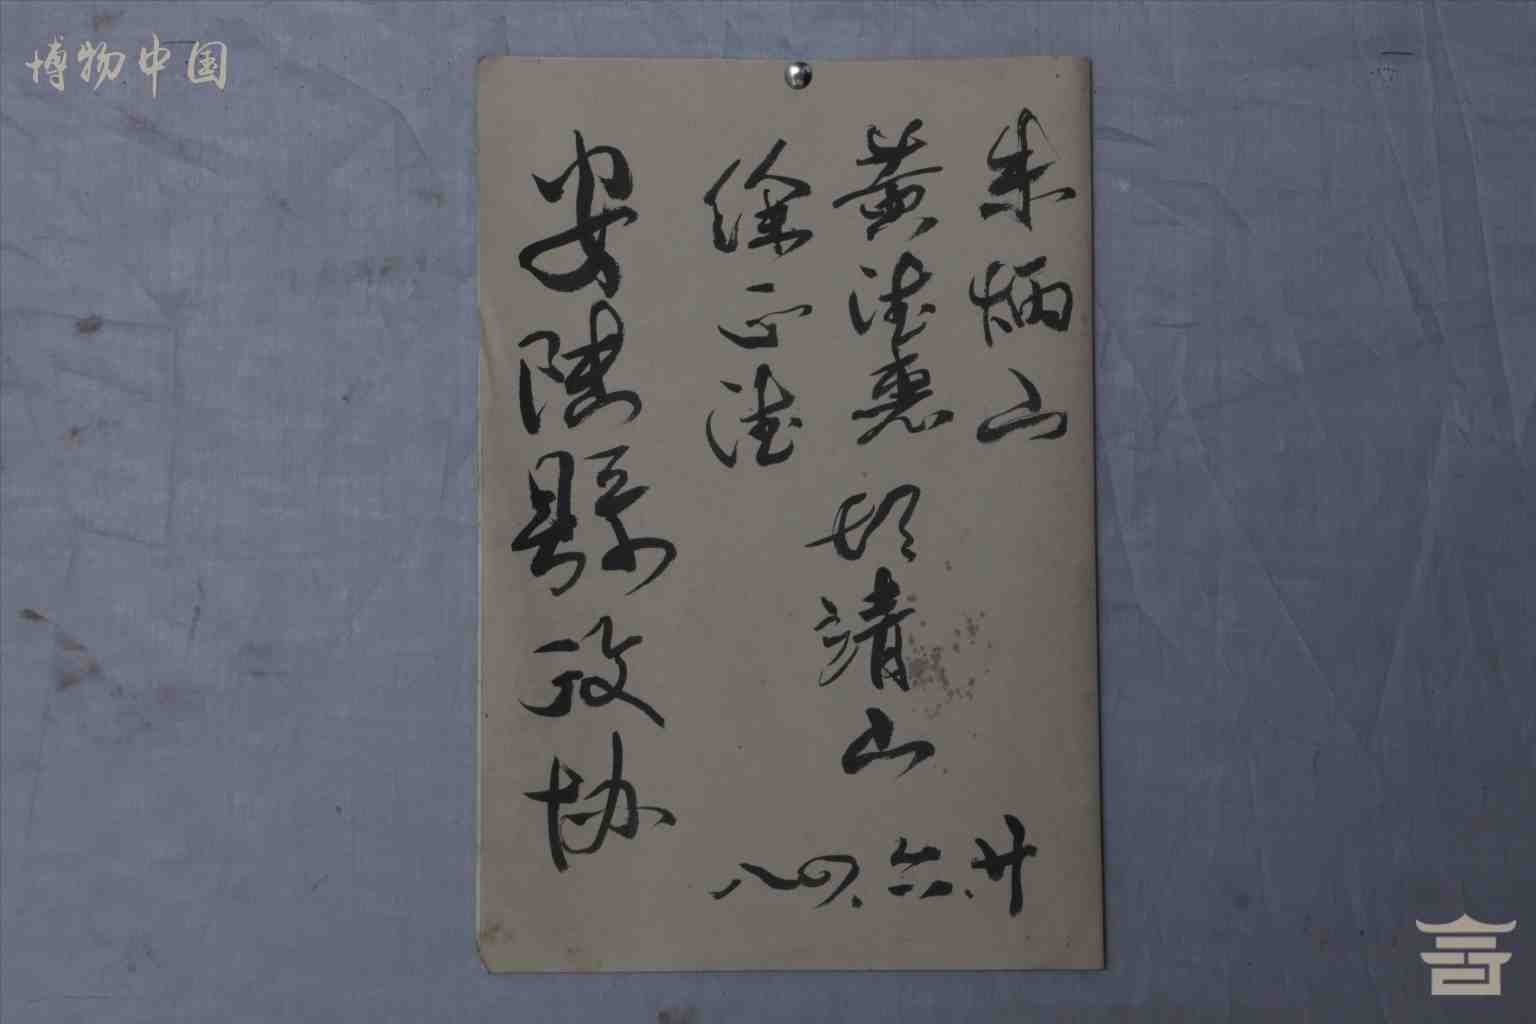 博物中国
朱炳山
黄德惠 胡靖山
徐正德
安陆縣政协
八四.六.廿